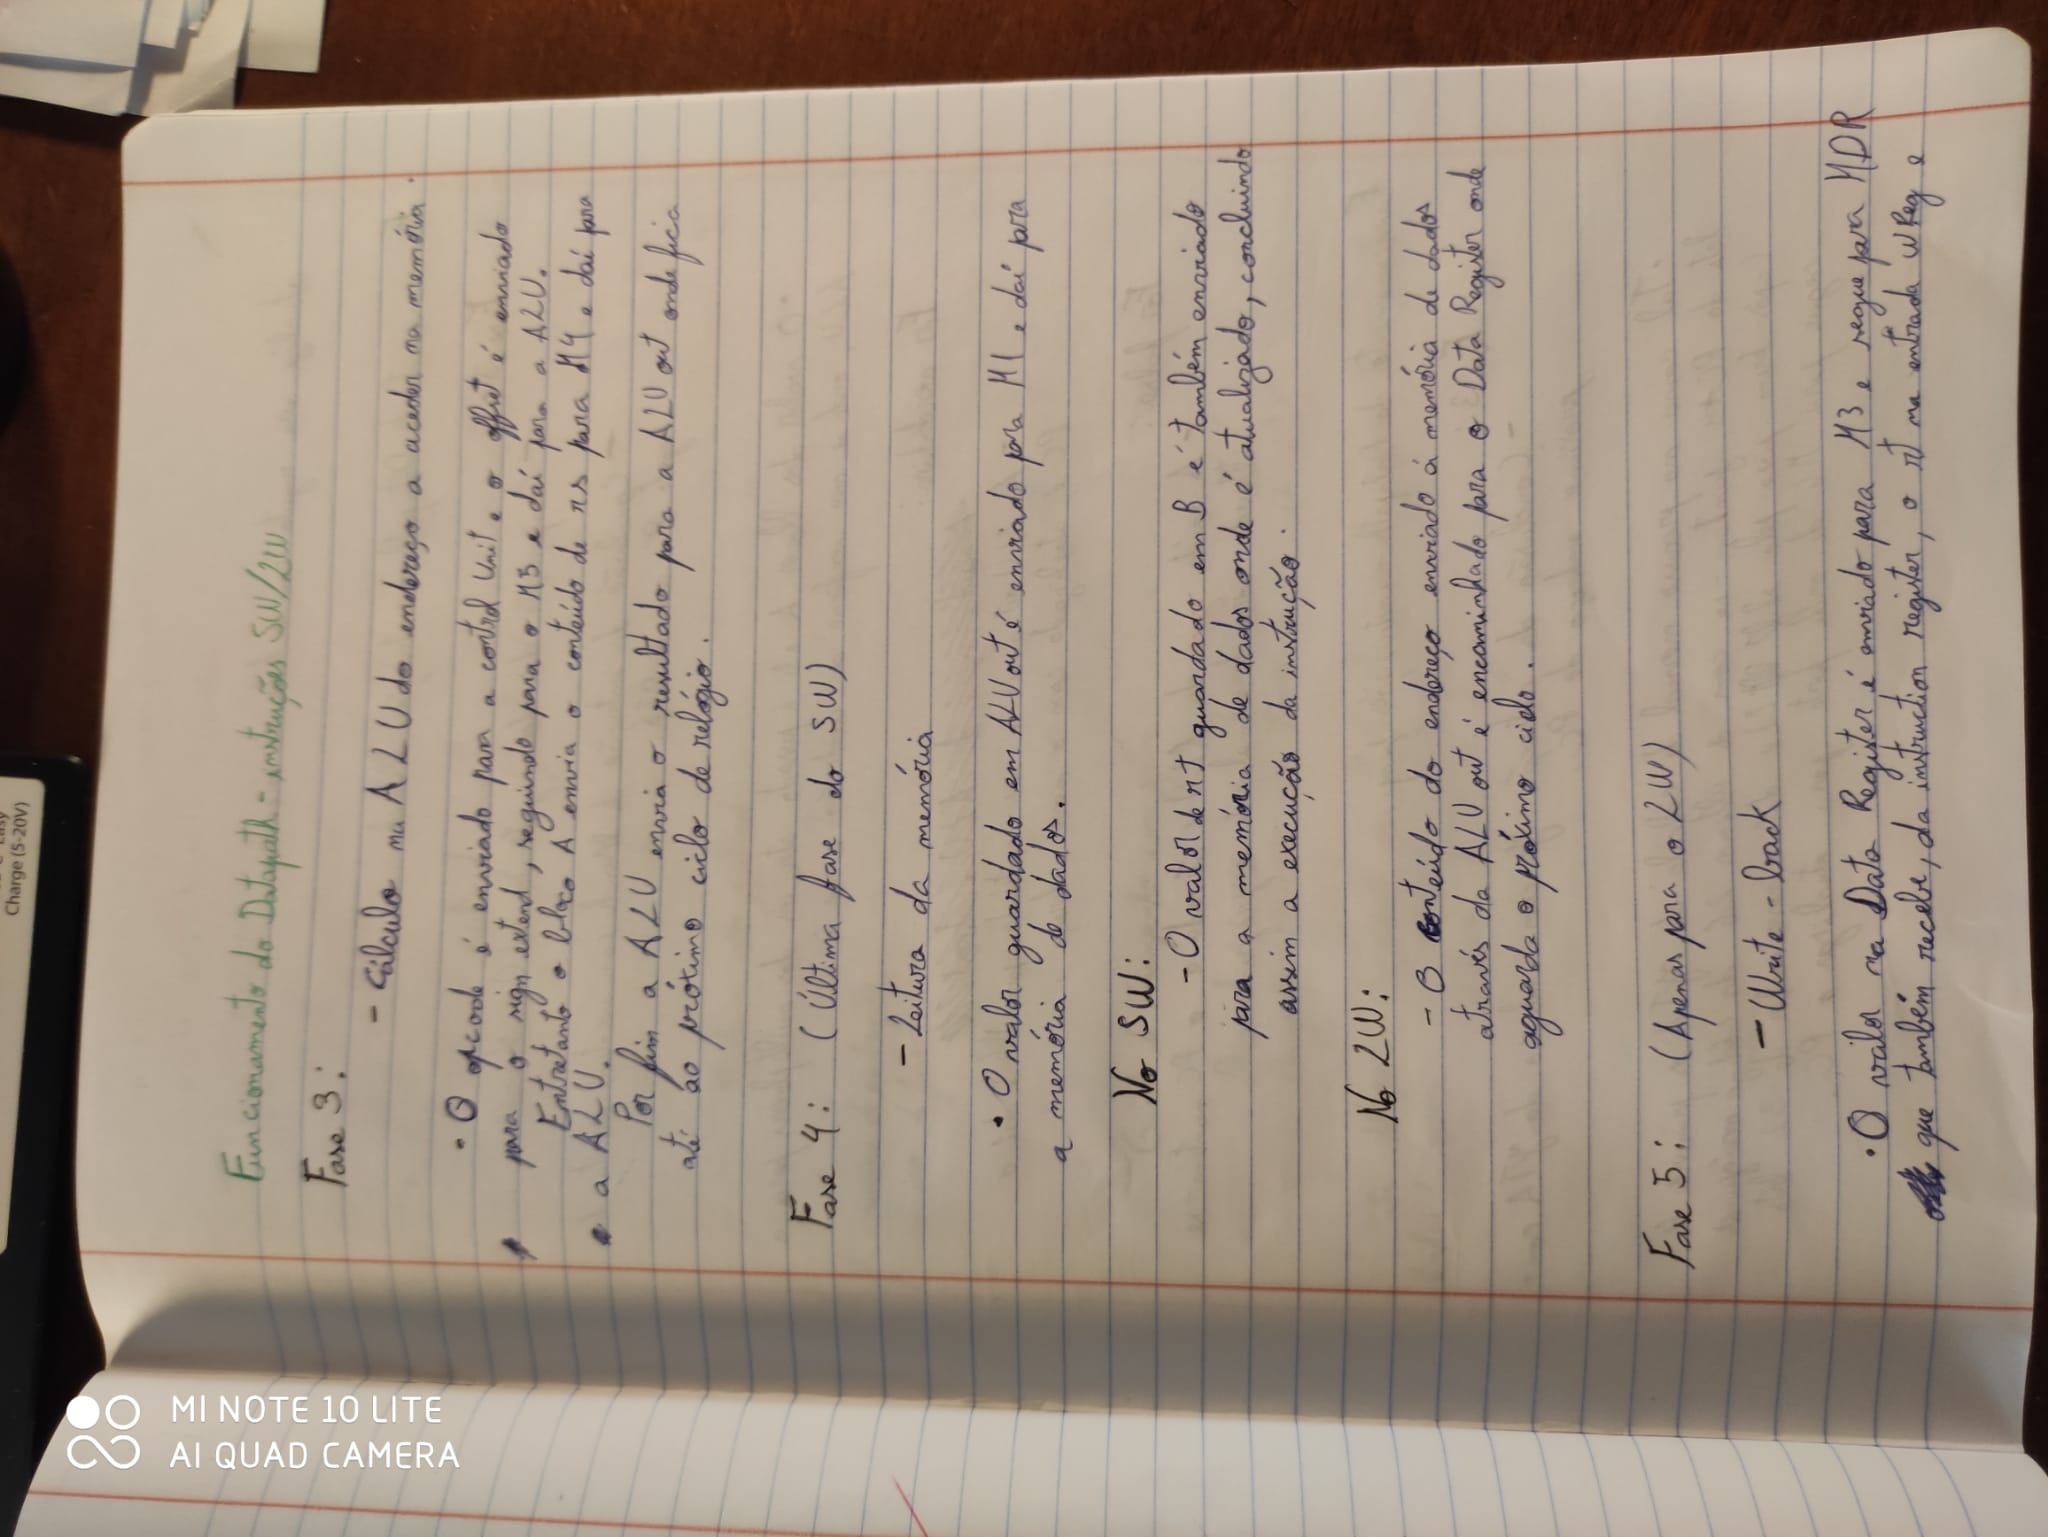 Easy
Charge (5-20V)
MI NOTE 10 LITE
AI QUAD CAMERA
Funcionamento do Datapath - instruções SW/LW
Fase 3:
- Cálculo na ALU do endereço a aceder na memória.
• O opcode é enviado para a control Unit e o offset é enviado
para o sign extend, seguindo para o M5 e daí para a ALU.
Entretanto o bloco A envia o conteúdo de rs para M4 e daí para
a ALU.
Por fim a ALU envia o resultado para a ALU out onde fica
até ao próximo ciclo de relógio.
Fase 4: (Última fase do SW)
- Leitura da memória
• O valor guardado em ALU out é enviado para M1 e daí para
a memória de dados.
No SW:
- O valor de rt guardado em B é também enviado
para a memória de dados onde é atualizado, concluindo
assim a execução da instrução.
No LW:
- O conteúdo do endereço enviado á memória de dados
através da ALU out é encaminhado para o Data Register onde
aguarda o próximo ciclo.
Fase 5: (Apenas para o LW)
- Write-back
• O valor na Data Register é enviado para M3 e segue para MDR
que também recebe, da instruction register, o rt na entrada WReg e